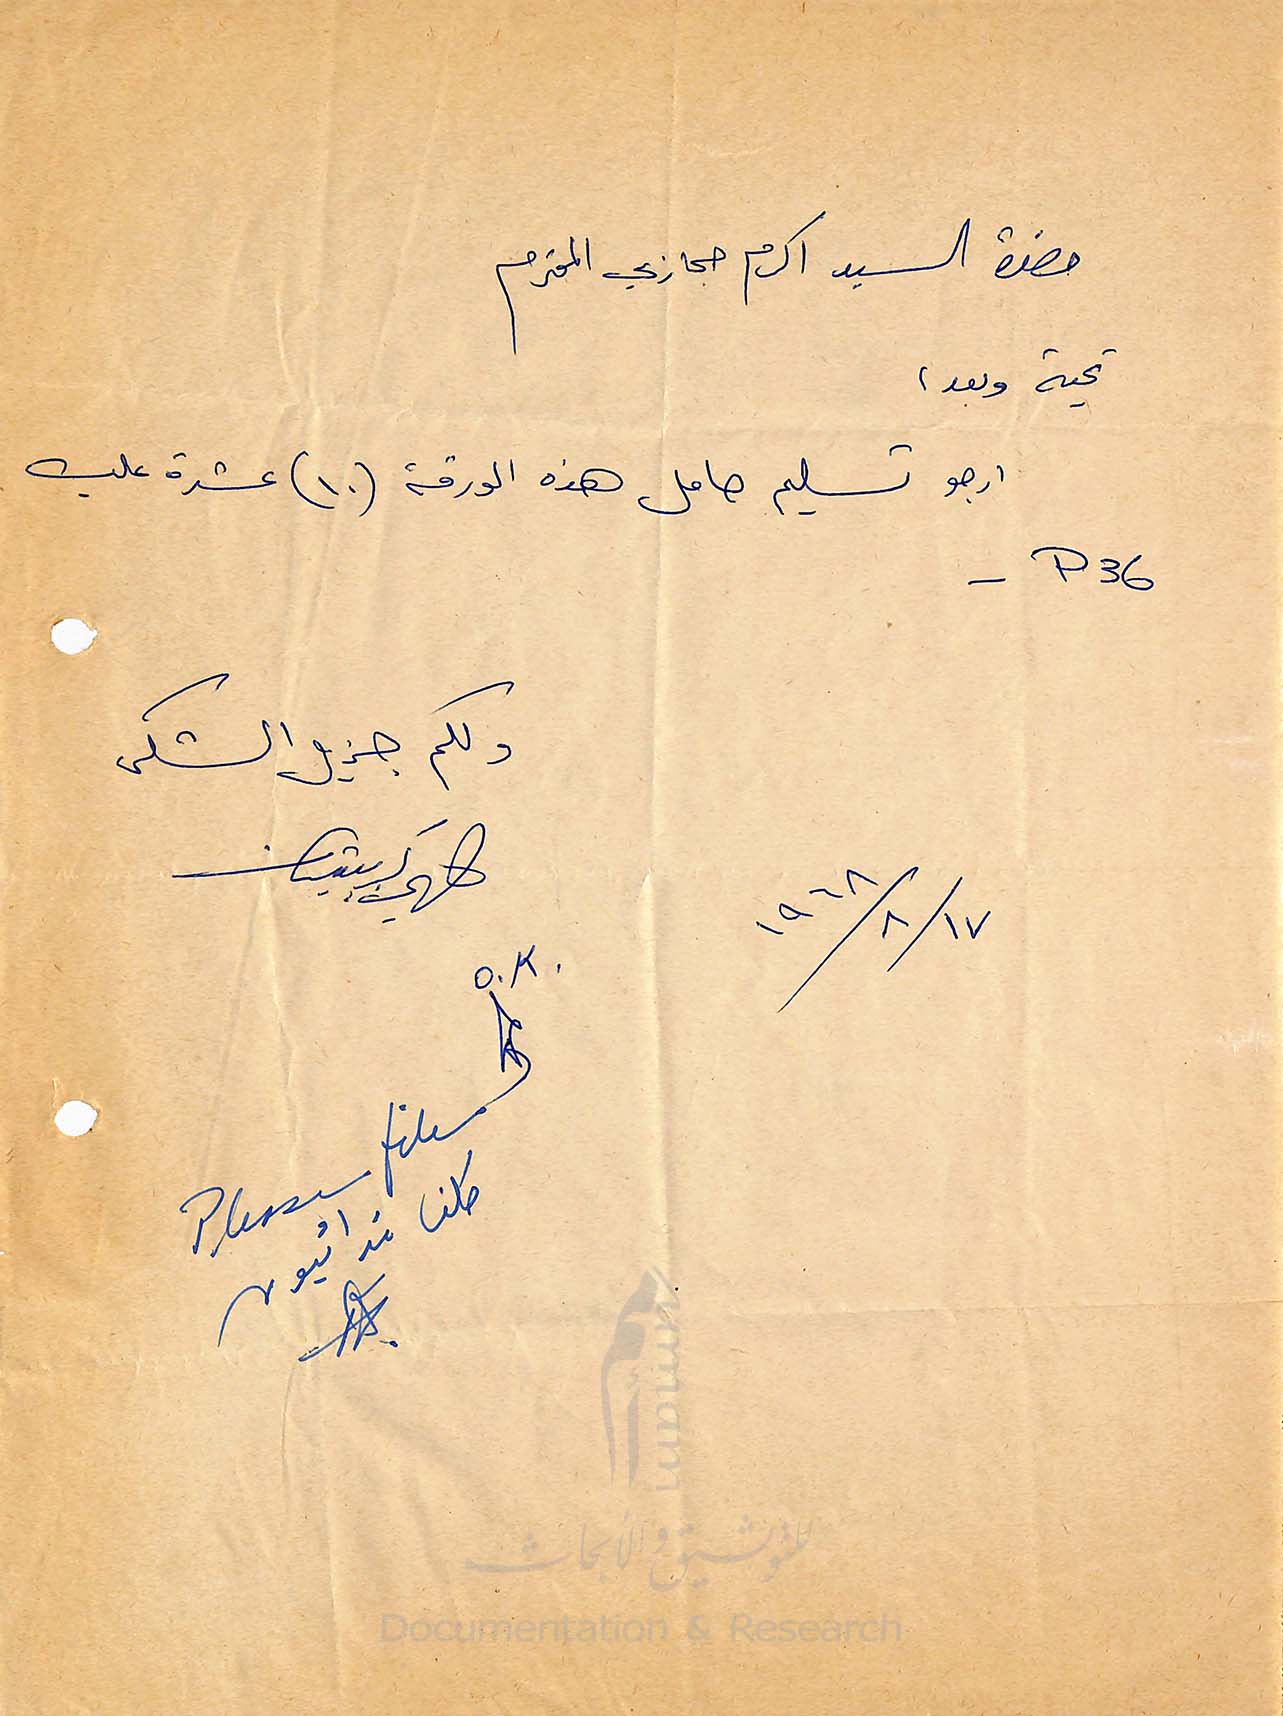 حضرة السيد اكرم حجازي المحترم
تحية وبعد ،
ارجو تسليم حامل هذه الورقة (١٠) عشرة علب
P36 -
ولكم جزيل الشكر
١٧/٨/١٩٦٨
O.K.
Please file
ملف فدائيون
umam
للتوثيق والأبحاث
Documentation & Research